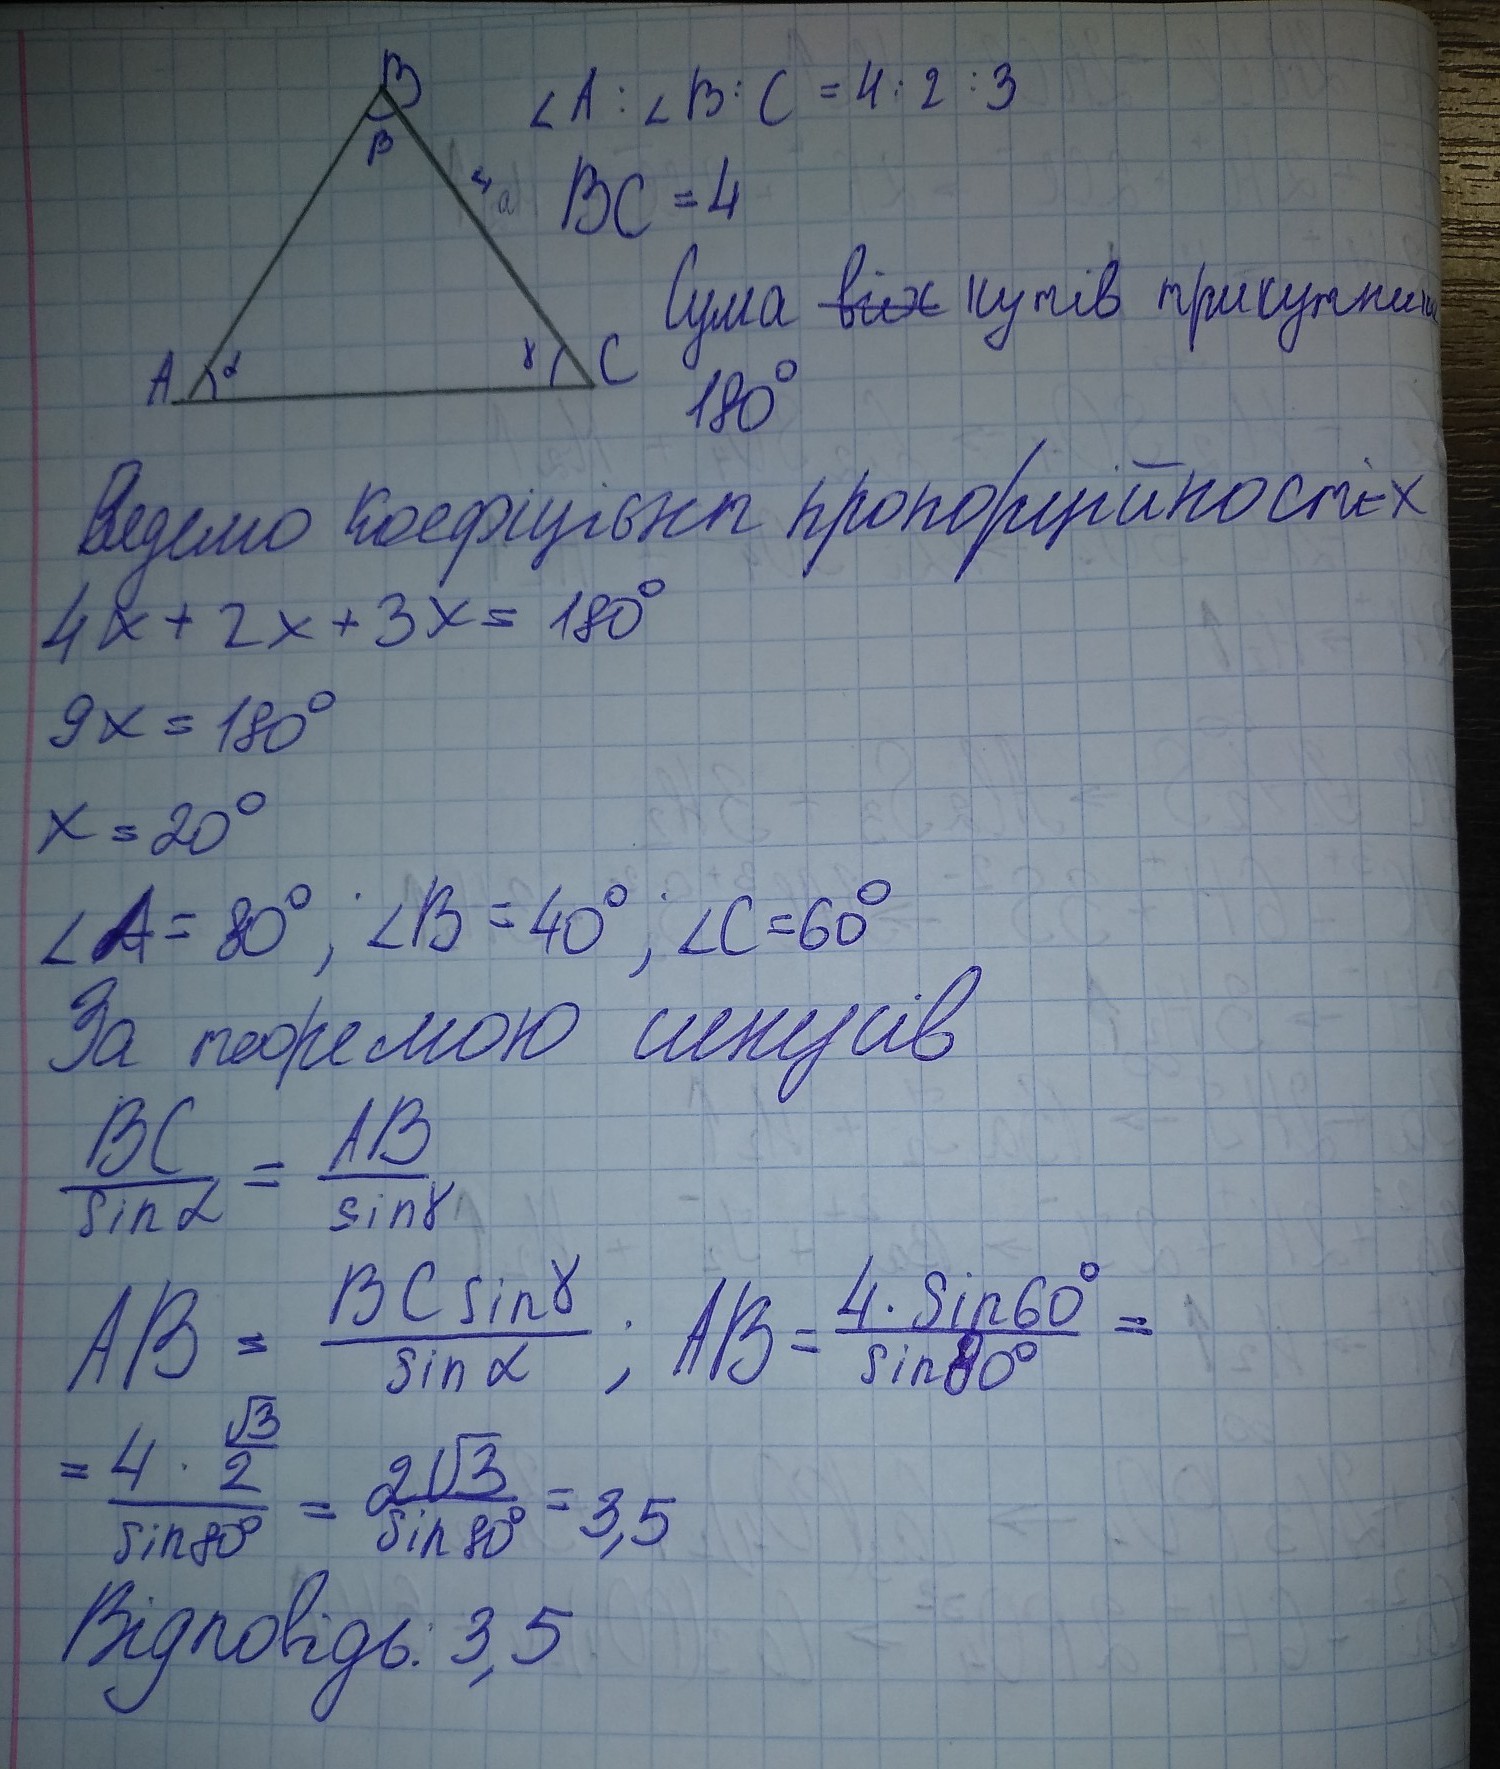 B
β
4
a
A
α
γ
C
∠A : ∠B : C = 4 : 2 : 3
BC = 4
Сума всіх кутів трикутника
180°
Ведемо коефіцієнт пропорційності х
4x + 2x + 3x = 180°
9x = 180°
x = 20°
∠A = 80° ; ∠B = 40° ; ∠C = 60°
За теоремою синусів
BC/sin α = AB/sin γ
AB = BC sin γ/sin α ; AB = 4 · sin 60°/sin 80° =
= 4 · √3/2/sin 80° = 2√3/sin 80° = 3,5
Відповідь: 3,5